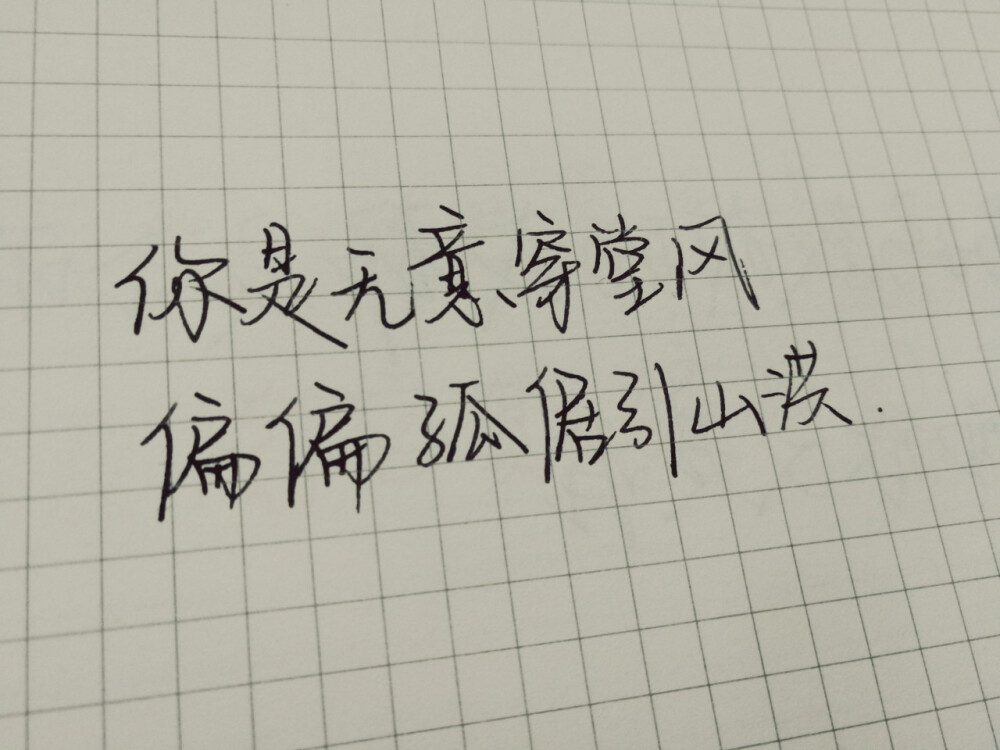 你是无意穿堂风
偏偏孤倨引山洪.